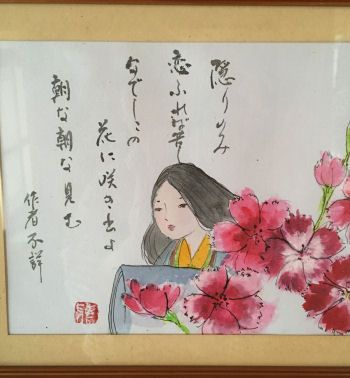 隠りのみ
恋ふれば苦し
なでしこの
花に咲き出よ
朝な朝な見む
作者不詳